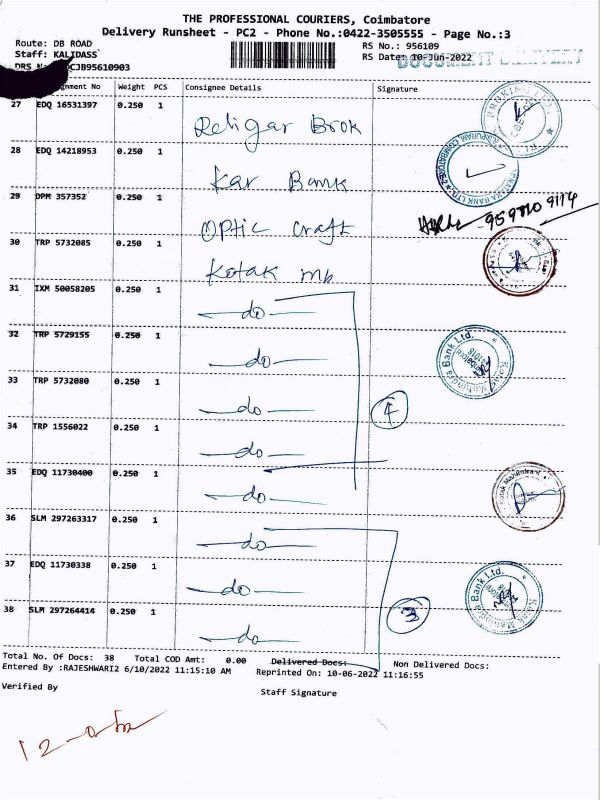 THE PROFESSIONAL COURIERS, Coimbatore
Delivery Runsheet - PC2 - Phone No.:0422-3505555 - Page No.:3
Route: DB ROAD
RS No.: 956109
Staff: KALIDASS
RS Date: 10-Jun-2022
DOCUMENT DELIVERY
CJB95610903
No Weight PCS Consignee Details Signature
27 EDQ 16531397 0.250 1 Religar Brok
28 EDQ 14218953 0.250 1 Kar Bank
29 DPM 357352 0.250 1 Optic craft
30 TRP 5732085 0.250 1 Kotak mb
31 IXM 50058205 0.250 1 do
32 TRP 5729155 0.250 1 do
Kotak Mahindra Bank Ltd.
33 TRP 5732080 0.250 1 do
4
34 TRP 1556022 0.250 1 do
35 EDQ 11730400 0.250 1 do
36 SLM 297263317 0.250 1 do
37 EDQ 11730338 0.250 1 do
Kotak Mahindra Bank Ltd.
38 SLM 297264414 0.250 1 do
3
Total No. Of Docs: 38 Total COD Amt: 0.00 Delivered Docs: Non Delivered Docs:
Entered By :RAJESHWARI2 6/10/2022 11:15:10 AM Reprinted On: 10-06-2022 11:16:55
Verified By
Staff Signature